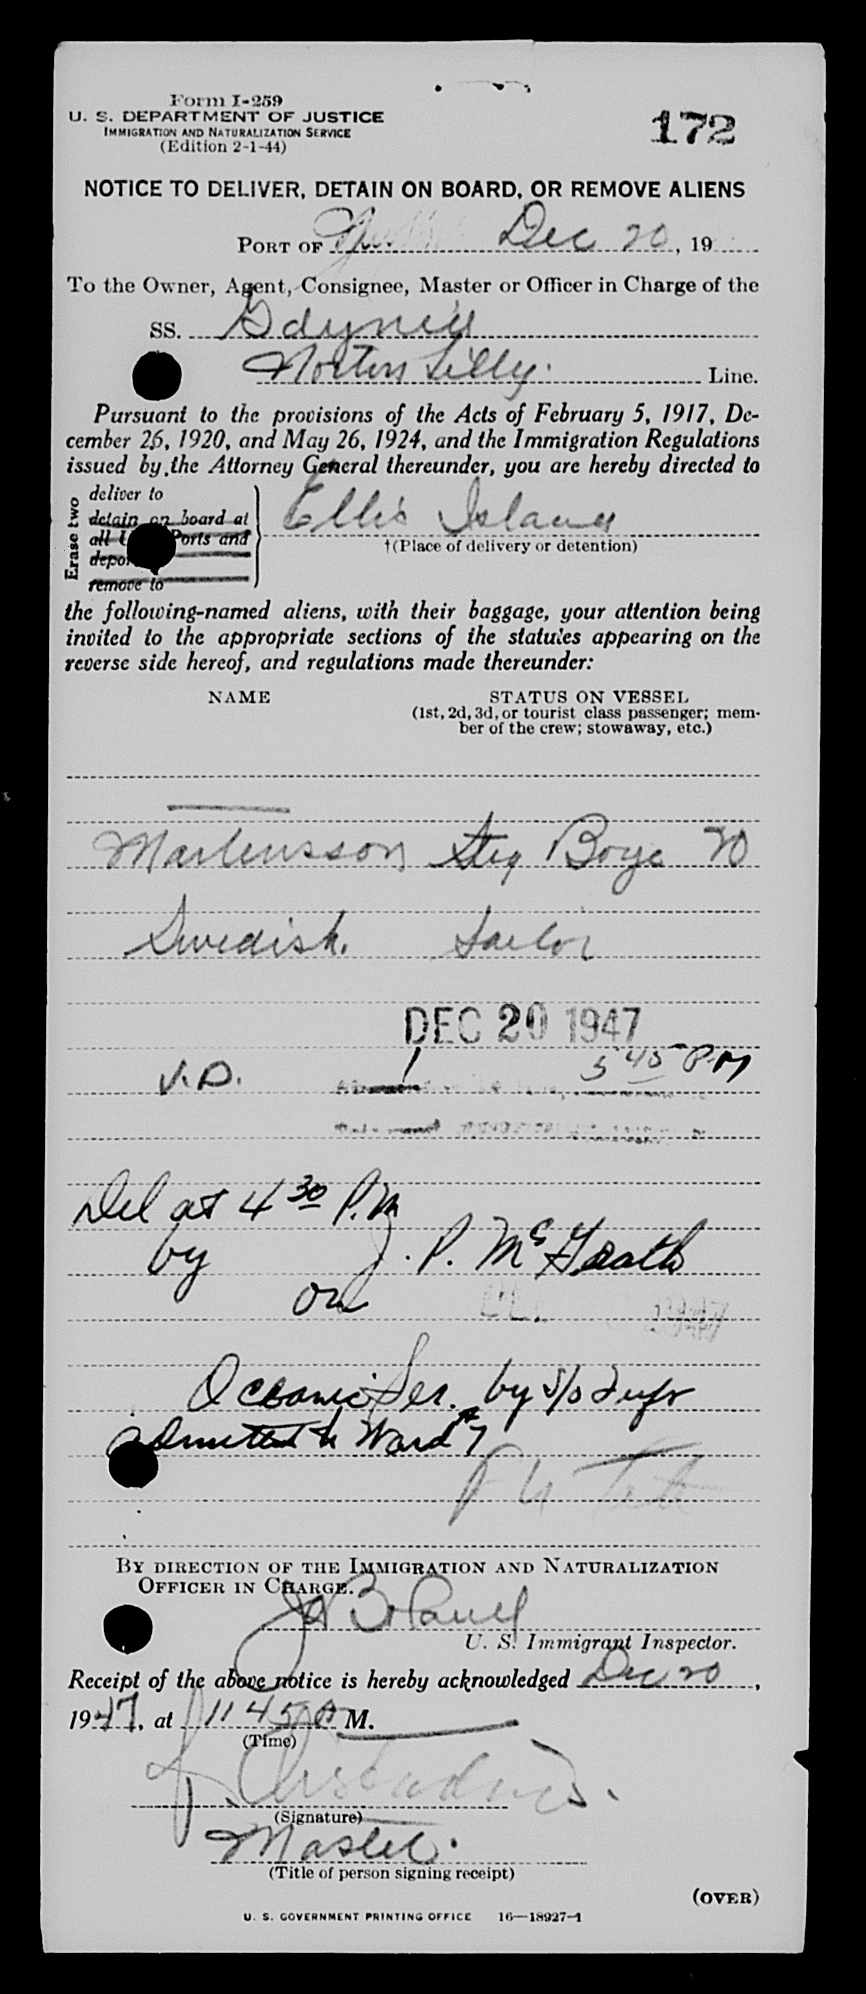 Form I-259
U. S. DEPARTMENT OF JUSTICE
IMMIGRATION AND NATURALIZATION SERVICE
(Edition 2-1-44)
172
NOTICE TO DELIVER, DETAIN ON BOARD, OR REMOVE ALIENS
PORT OF Dec 20, 19
To the Owner, Agent, Consignee, Master or Officer in Charge of the
SS. Gdynia
Norton Lilly. Line.
Pursuant to the provisions of the Acts of February 5, 1917, De-
cember 26, 1920, and May 26, 1924, and the Immigration Regulations
issued by the Attorney General thereunder, you are hereby directed to
Erase two
deliver to
detain on board at
all Ports and
remove to
Ellis Island
†(Place of delivery or detention)
the following-named aliens, with their baggage, your attention being
invited to the appropriate sections of the statutes appearing on the
reverse side hereof, and regulations made thereunder:
NAME STATUS ON VESSEL
(1st, 2d, 3d, or tourist class passenger; mem-
ber of the crew; stowaway, etc.)
Martensson Stig Boye 20
Swedish. Sailor
DEC 20 1947
V.D. 5 45 PM
Del at 4 30 P.M
by J. P. McGrath
on 1947
Oceanic Ser. by S/O
admitted to Ward #7
BY DIRECTION OF THE IMMIGRATION AND NATURALIZATION
OFFICER IN CHARGE.
U. S. Immigrant Inspector.
Receipt of the above notice is hereby acknowledged Dec 20,
1947, at 11 45 A M.
(Time)
(Signature)
Master.
(Title of person signing receipt)
(OVER)
U. S. GOVERNMENT PRINTING OFFICE 16—18927-1